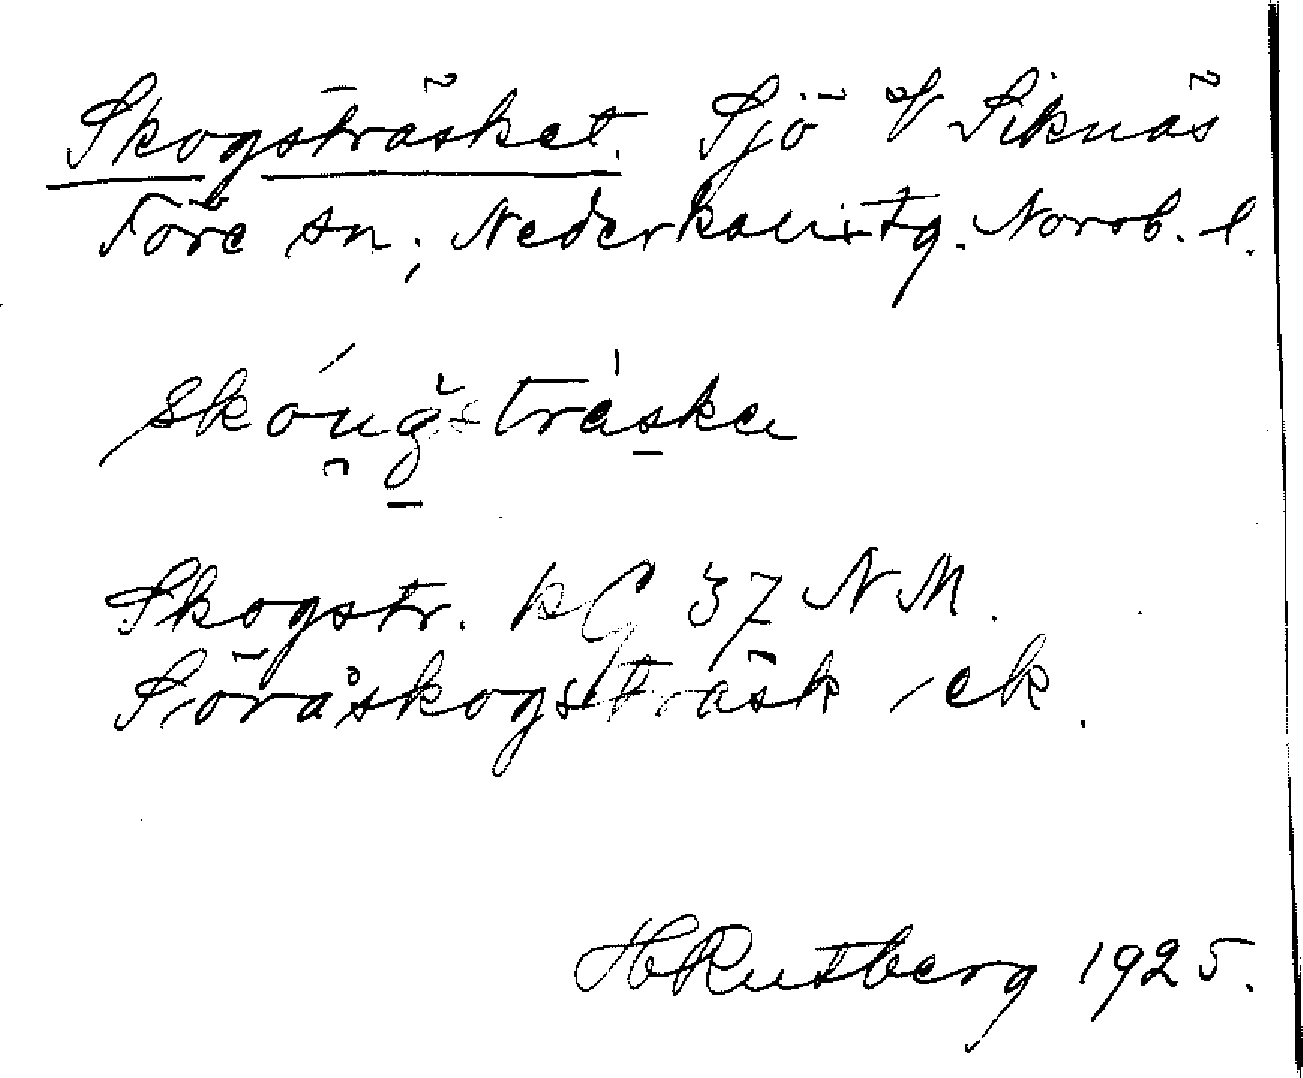 Skogsträsket. Sjö V Siknäs
Töre sn; Nederkalix tg. Norrb. l.
skóu̯gstráska
Skogstr. kG 37 NM.
Söråskogsträsk ek.
HRutberg 1925.